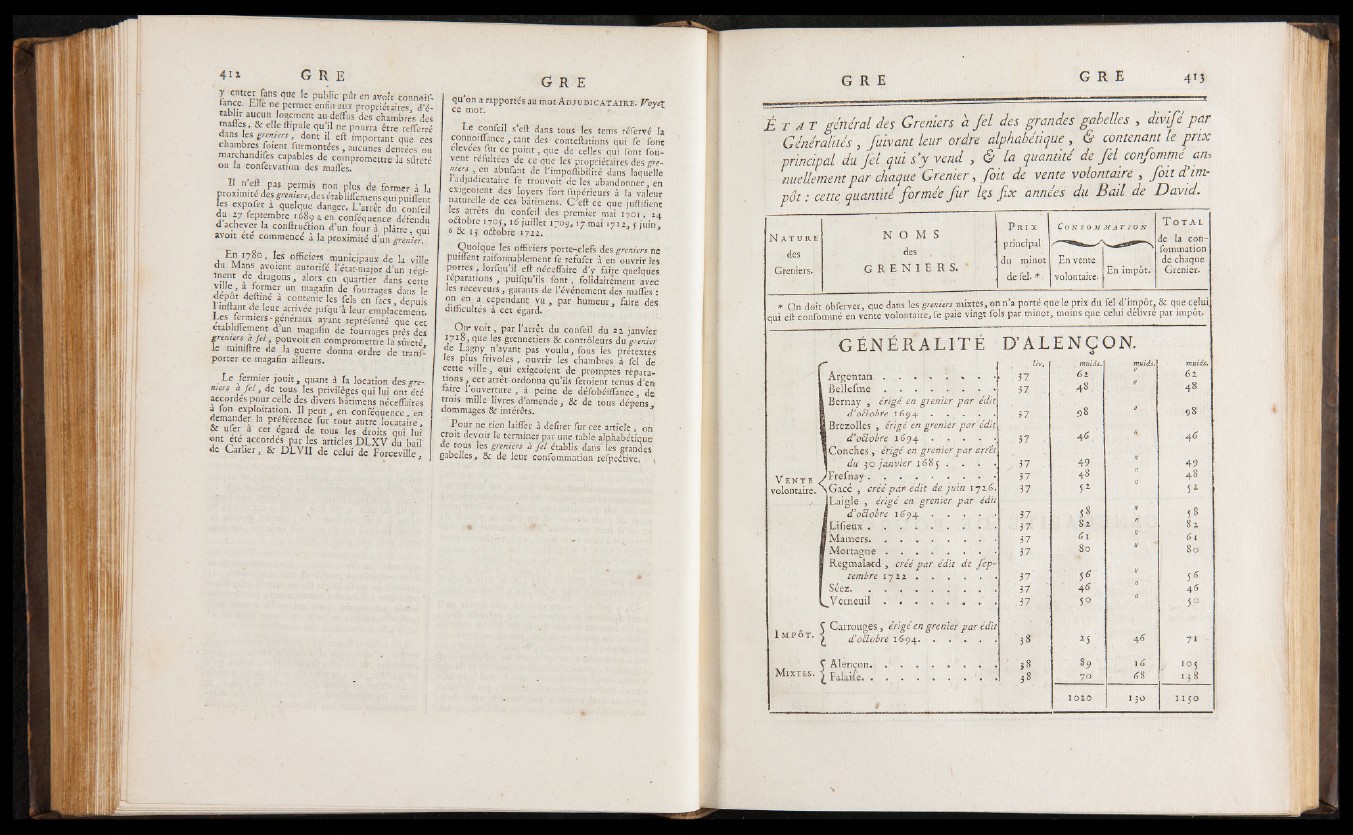 412 G R E
y entrer sans que le public pût en avoir connois-
sance. Elle ne permet enfin aux propriétaires, d'é-
tablir aucun logement au-dessus des chambres des
masses, & elle stipule qu'il ne pourra être resserré
dans les greniers, dont il est important que ces
chambres soient surmontées, aucunes denrées ou
marchandises capables de compromettre la sûreté
ou la conservation des masses.
Il n'est pas permis non plus de former à la
proximité des greniers, des établissemens qui puissent
les exposer à quelque danger. L'arrêt du conseil
du 27 septembre 1689 a en conséquence défendu
d'achever la construction d'un four à plâtre, qui
avoit été commencé à la proximité d'un grenier.
En 1780, les officiers municipaux de la ville
du Mans avoient autorisé l'état-major d'un régi-
ment de dragons, alors en quartier dans cette
ville, à former un magasin de fourrages dans le
dépôt destiné à contenir les sels en sacs, depuis
l'instant de leur arrivée jusqu'à leur emplacement.
Les fermiers-généraux ayant représenté que cet
établissement d'un magasin de fourrages près des
greniers à sel, pouvoit en compromettre la sûreté,
le ministre de la guerre donna ordre de trans-
porter ce magasin ailleurs.
Le fermier jouit, quant à la location des gre-
niers à sel, de tous les privilèges qui lui ont été
accordés pour celle des divers bâtimens nécessaires
à son exploitation. Il peut, en conséquence, en
demander la préférence sur tout autre locataire,
& user à cet égard de tous les droits qui lui
ont été accordés par les articles DLXV du bail
de Carlier, & DLVII de celui de Forceville,
G R E
qu'on a rapportés au mot ADJUDICATAIRE. Voyez
ce mot.
Le conseil s'est dans tous les tems réservé la
connoissance, tant des contestations qui se sont
élevées sur ce point, que de celles qui sont sou-
vent résultées de ce que les propriétaires des gre-
niers, en abusant de l'impossibilité dans laquelle
l'adjudicataire se trouvoit de les abandonner, en
exigeoient des loyers fort supérieurs à la valeur
naturelle de ces bâtimens. C'est ce que justifient
les arrêts du conseil des premier mai 1701, 24
octobre 1705, 16 juillet 1709, 17 mai 1712, 5 juin,
6 & 15 octobre 1722.
Quoique les officiers porte-clefs des greniers ne
puissent raisonnablement se refuser à en ouvrir les
portes, lorsqu'il est nécessaire d'y faire quelques
réparations, puisqu'ils sont, solidairement avec
les receveurs, garants de l'événement des masses :
on en a cependant vu, par humeur, faire des
difficultés à cet égard.
On voit, par l'arrêt du conseil du 22 janvier
1718, que les grenetiers & contrôleurs du grenier
de Lagny n'ayant pas voulu, sous les prétextes
les plus frivoles, ouvrir les chambres à sel de
cette ville, qui exigeoient de promptes répara-
tions, cet arrêt ordonna qu'ils seroient tenus d'en
faire l'ouverture, à peine de désobéissance, de
trois mille livres d'amende, & de tous dépens,
dommages & intérêts.
Pour ne rien laisser à desirer sur cet article, on
croit devoir le terminer par une table alphabétique
de tous les greniers à sel établis dans les grandes
gabelles, & de leur consommation respective.
G R E G R E 413
ÉTAT général des Greniers à sel des grandes gabelles, divisé par
Généralités, suivant leur ordre alphabétique, & contenant le prix
principal du sel qui s'y vend, & la quantité de sel consommé an-
nuellement par chaque Grenier, soit de vente volontaire, soit d'im-
pôt : cette quantité formée sur les six années du Bail de David.
NATURE des Greniers. | NOMS des GRENIERS. | PRIX principal du minot de sel. * | CONSOMMATION En vente volontaire. | En impôt. | TOTAL de la con-sommation de chaque Grenier.
* On doit observer, que dans les greniers mixtes, on n'a porté que le prix du sel d'impôt, & que celui
qui est consommé en vente volontaire, se paie vingt sols par minot, moins que celui délivré par impôt.
GÉNÉRALITÉ D'ALENÇON.
liv. muids. muids. muids.
Argentan . . . . . . . 37 62 " 62
Bellesme . . . . . . . 37 48 " 48
Bernay, érigé en grenier par édit
d'octobre 1694 . . . . . 37 98 " 98
Brezolles, érigé en grenier par édit
d'octobre 1694 . . . . . 37 46 " 46
Conches, érigé en grenier par arrêt
du 30 janvier 1685 . . . . 37 49 " 49
VENTE volontaire. Fresnay . . . . . . . 37 48 " 48
Gacé, créé par édit de juin 1726. 37 52 " 52
Laigle, érigé en grenier par édit
d'octobre 1694 . . . . . 37 58 " 58
Lisieux . . . . . . . . 37 82 " 82
Mamers. . . . . . . . 37 61 " 61
Mortagne . . . . . . . 37 80 " 80
Regmalard, créé par édit de sep-
tembre 1722 . . . . . . 37 56 " 56
Séez. . . . . . . . . 37 46 " 46
Verneuil . . . . . . . 37 50 " 50
IMPÔT. Carrouges, érigé en grenier par édit
d'octobre 1694. . . . . . 38 25 46 71
MIXTES. Alençon. . . . . . . . 38 89 16 105
Falaise. . . . . . . . . 38 70 68 138
1020 130 1150